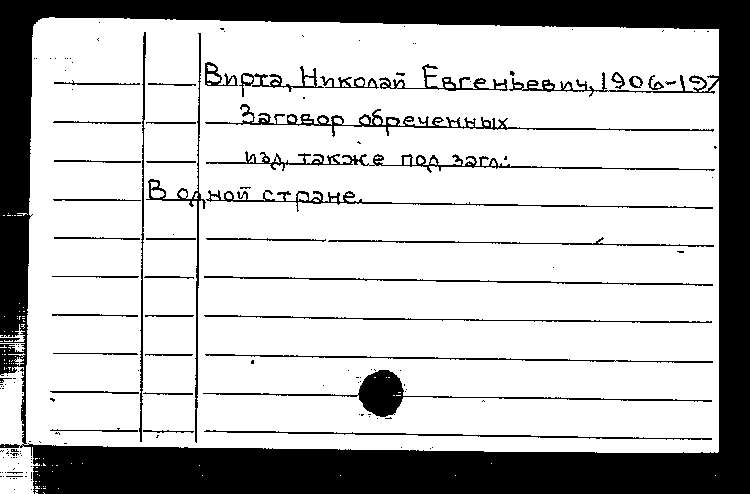 Вирта, Николай Евгеньевич, 1906-197
Заговор обреченных
изд. также под загл.:
В одной стране.